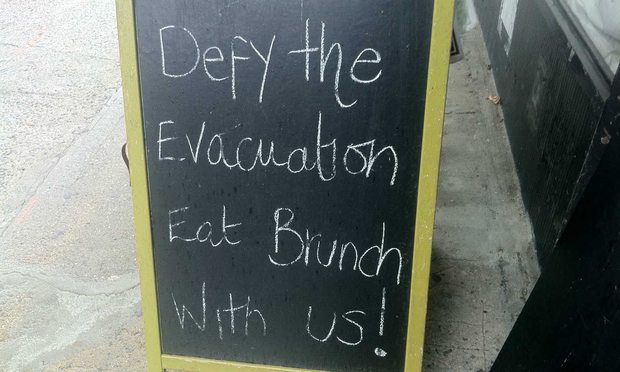 Defy the
Evacuation
Eat Brunch
With us!